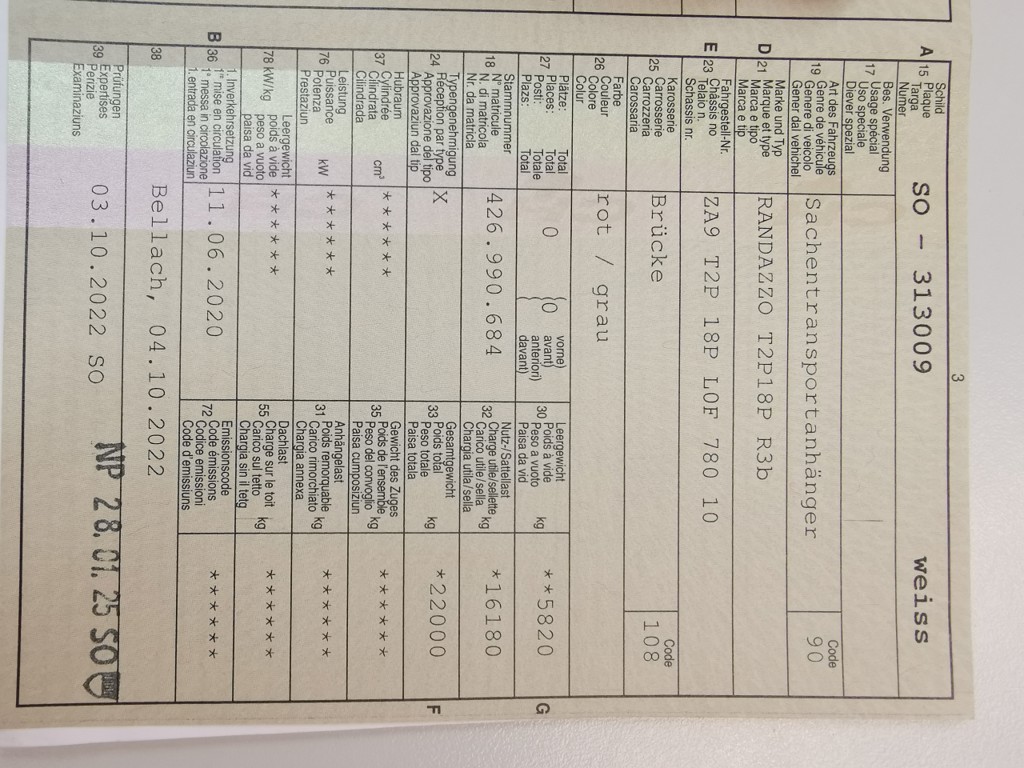 3
A 15 Schild
Plaque
Targa
Numer
SO - 313009 weiss
17 Bes. Verwendung
Usage spécial
Uso speciale
Diever spezial
19 Art des Fahrzeugs
Genre de véhicule
Genere di veicolo
Gener dal vehichel
Sachentransportanhänger
Code
90
D 21 Marke und Typ
Marque et type
Marca e tipo
Marca e tip
RANDAZZO T2P18P R3b
E 23 Fahrgestell-Nr.
Châssis no
Telaio n.
Schassis nr.
ZA9 T2P 18P L0F 780 10
25 Karosserie
Carrosserie
Carrozzeria
Carrossaria
Brücke
Code
108
26 Farbe
Couleur
Colore
Colur
rot / grau
27 Plätze: Total
Places: Total
Posti: Totale
Plazs: Total
0
0
vorne)
avant)
anteriori)
davant)
30 Leergewicht
Poids à vide
Peso a vuoto
Paisa da vid
kg
**5820
G
18 Stammnummer
N° matricule
N. di matricola
Nr. da matricla
426.990.684
32 Nutz-/Sattellast
Charge utile/sellette
Carico utile/sella
Chargia utila/sella
kg
*16180
24 Typengenehmigung
Réception par type
Approvazione del tipo
Approvaziun dal tip
X
33 Gesamtgewicht
Poids total
Peso totale
Paisa totala
kg
*22000
F
37 Hubraum
Cylindrée
Cilindrata
Cilindrada
cm³
*****
35 Gewicht des Zuges
Poids de l'ensemble
Peso del convoglio
Paisa cumposiziun
kg
******
76 Leistung
Puissance
Potenza
Prestaziun
kW
******
31 Anhängelast
Poids remorquable
Carico rimorchiato
Chargia annexa
kg
******
78 kW/kg
Leergewicht
poids à vide
peso a vuoto
paisa da vid
******
55 Dachlast
Charge sur le toit
Carico sul tetto
Chargia sin il tetg
kg
******
B 36 1. Inverkehrsetzung
1re mise en circulation
1a messa in circolazione
1. entrada en circulaziun
11.06.2020
72 Emissionscode
Code émissions
Codice emissioni
Code d'emissiuns
******
38
Bellach, 04.10.2022
39 Prüfungen
Expertises
Perizie
Examinaziuns
03.10.2022 SO
NP 28.01.25 SO